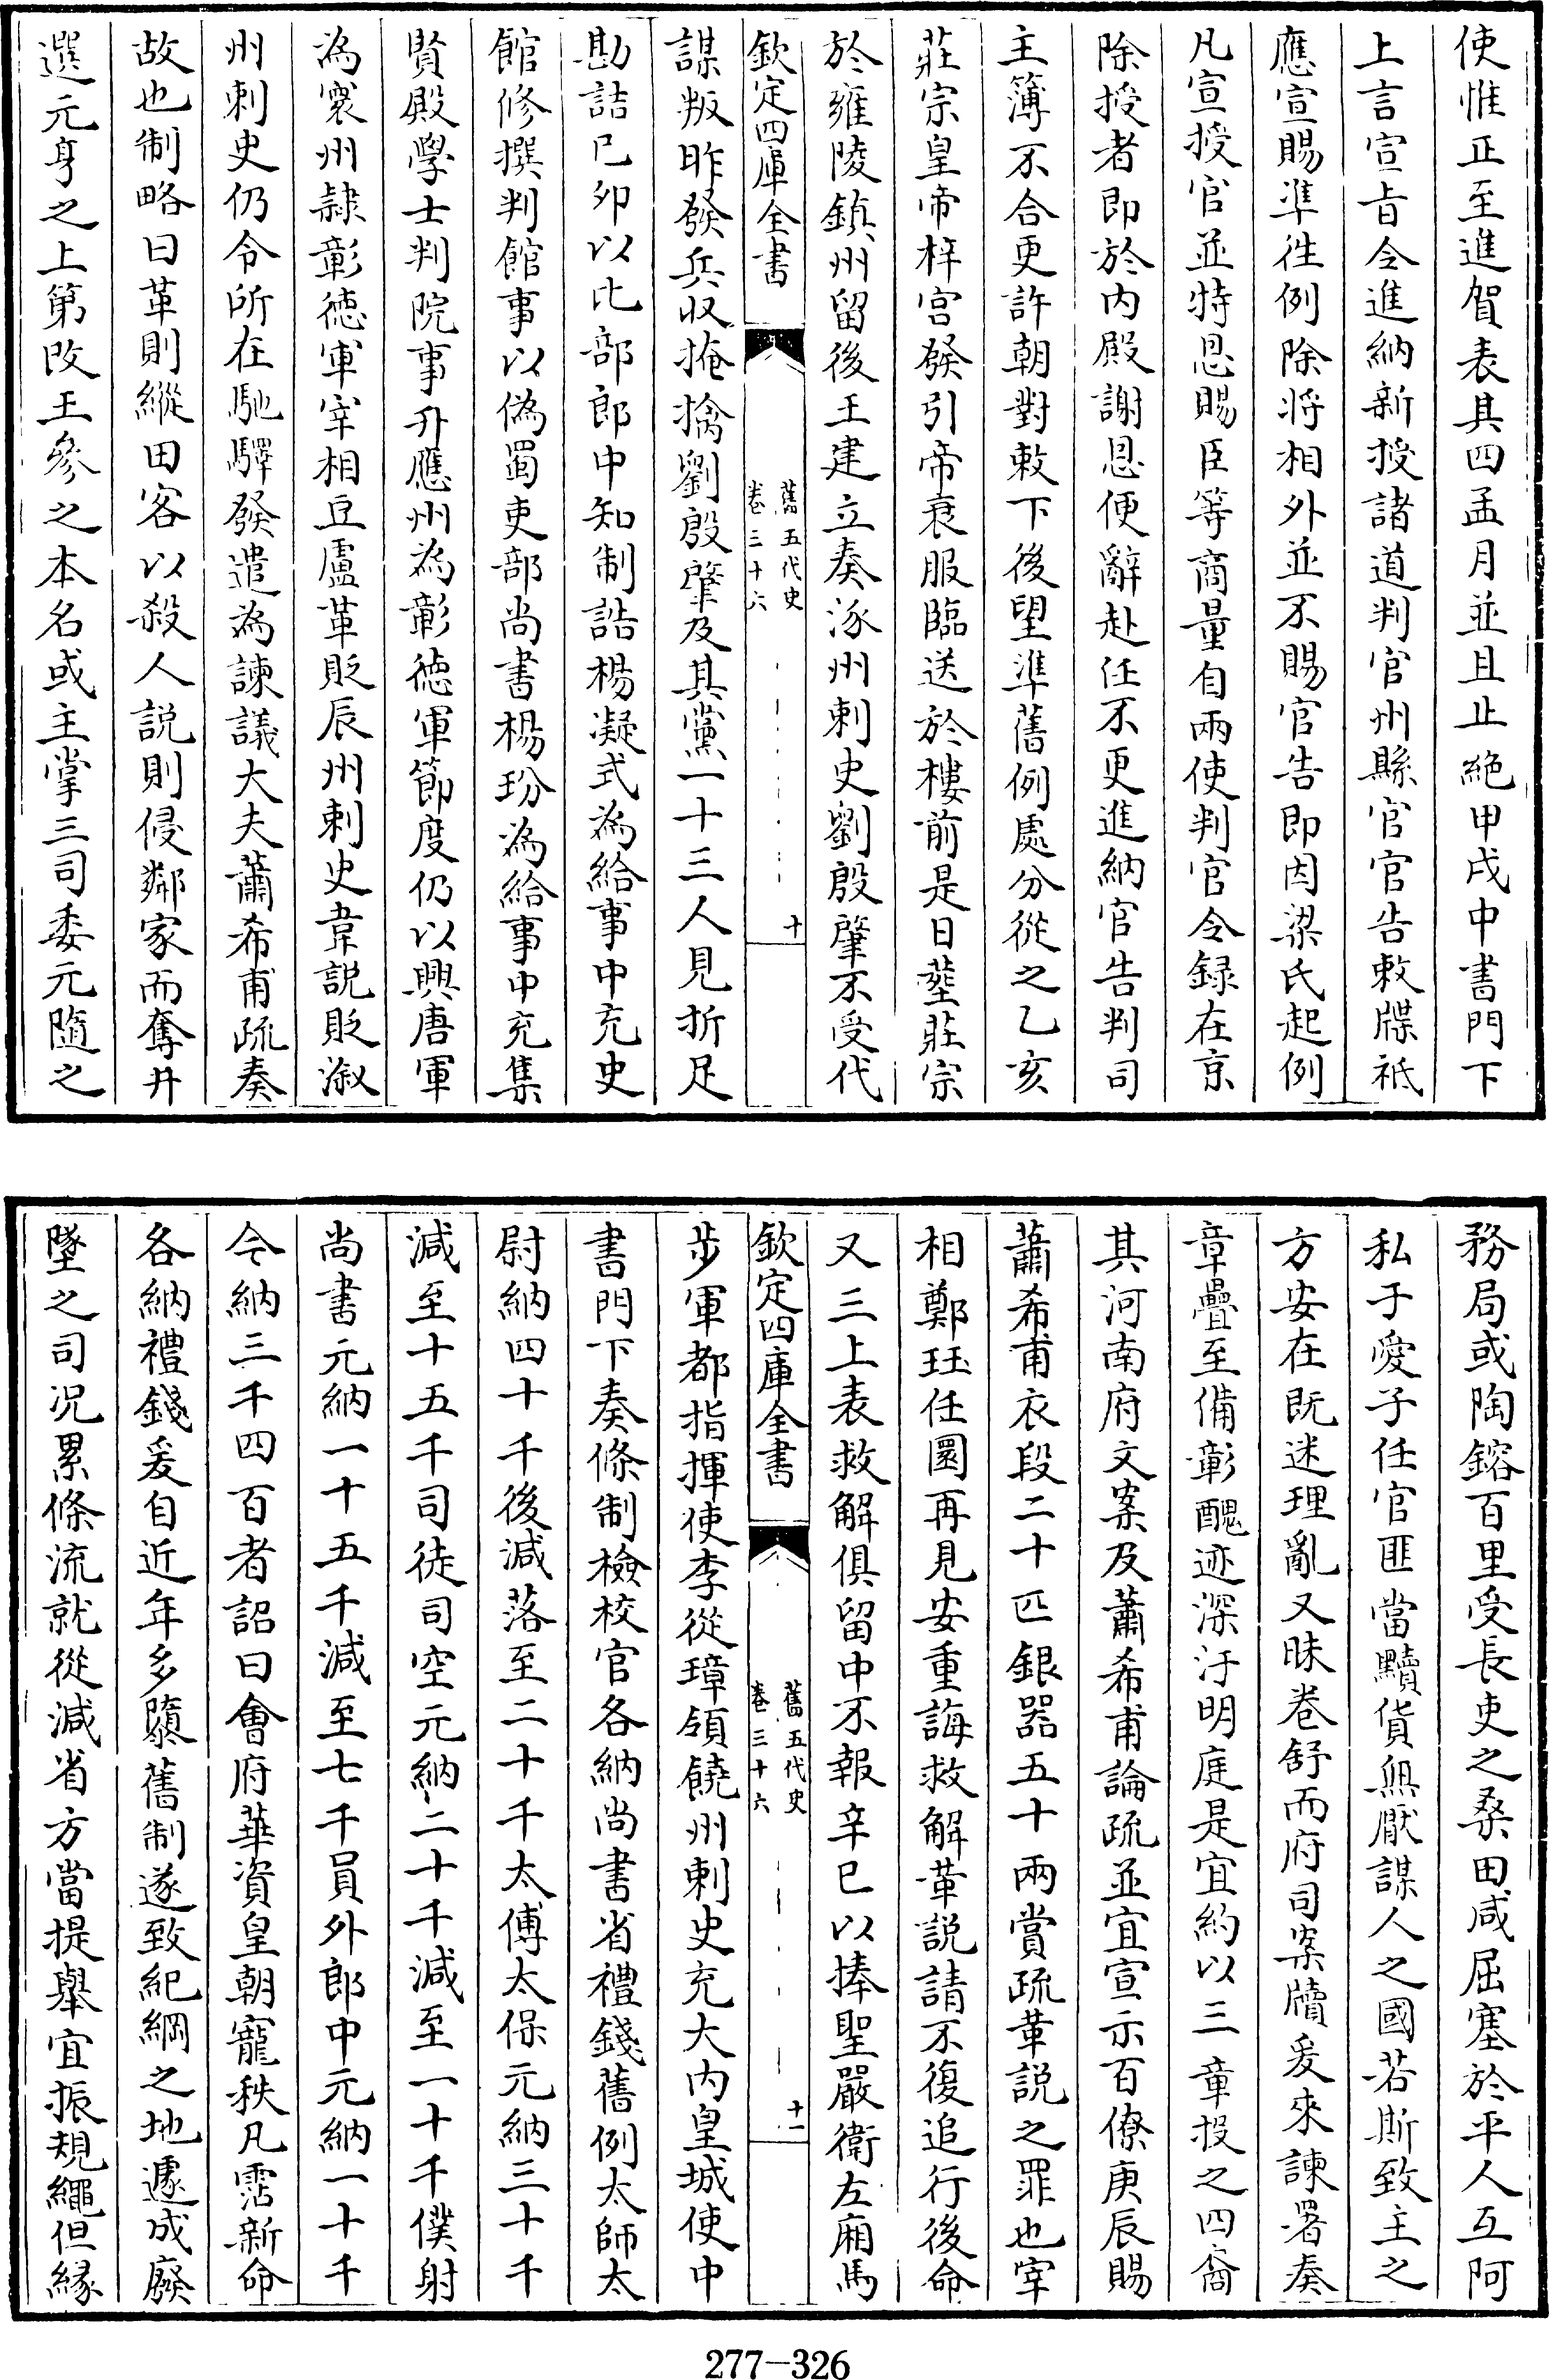 使惟正至進賀表其四孟月並且止絶甲戌中書門下
上言宣旨令進納新授諸道判官州縣官官告敕牒祗
應宣賜準徃例除將相外並不賜官告即因梁氏起例
凡宣授官並特恩賜臣等商量自兩使判官令録在京
除授者即於内殿謝恩便辭赴任不更進納官告判司
主簿不合更許朝對敕下後望準舊例處分從之乙亥
莊宗皇帝梓宫發引帝衰服臨送於樓前是日塟莊宗
於雍陵鎮州留後王建立奏涿州刺史劉殷肇不受代
欽定四庫全書
舊五代史
卷三十六
十
謀叛昨發兵収掩擒劉殷肇及其黨一十三人見折足
勘詰已夘以比部郎中知制誥楊凝式為給事中充史
館修撰判館事以偽蜀吏部尚書楊玢為給事中充集
賢殿學士判院事升應州為彰德軍節度仍以興唐軍
為寰州隷彰德軍宰相豆盧革貶辰州刺史韋說貶溆
州刺史仍令所在馳驛發遣為諫議大夫蕭希甫疏奏
故也制略曰革則縱田客以殺人說則侵鄰家而奪井
選元身之上第改王參之本名或主掌三司委元隨之
務局或陶鎔百里受長吏之桑田咸屈塞於平人互阿
私于愛子任官匪當黷貨無厭謀人之國若斯致主之
方安在既迷理亂又昧卷舒而府司案牘爰來諫署奏
章疊至備彰醜迹深汙明庭是宜約以三章投之四裔
其河南府文案及蕭希甫論疏並宜宣示百僚庚辰賜
蕭希甫衣段二十匹銀器五十兩賞疏革說之罪也宰
相鄭珏任圜再見安重誨救解革說請不復追行後命
又三上表救解俱留中不報辛巳以捧聖嚴衛左廂馬
欽定四庫全書
舊五代史
卷三十六
十一
步軍都指揮使李從璋領饒州刺史充大内皇城使中
書門下奏條制檢校官各納尚書省禮錢舊例太師太
尉納四十千後減落至二十千太傅太保元納三十千
減至十五千司徒司空元納二十千減至一十千僕射
尚書元納一十五千減至七千員外郎中元納一十千
今納三千四百者詔曰會府華資皇朝寵秩凡霑新命
各納禮錢爰自近年多隳舊制遂致紀綱之地遽成廢
墜之司况累條流就從減省方當提舉宜振規繩但縁
277-326